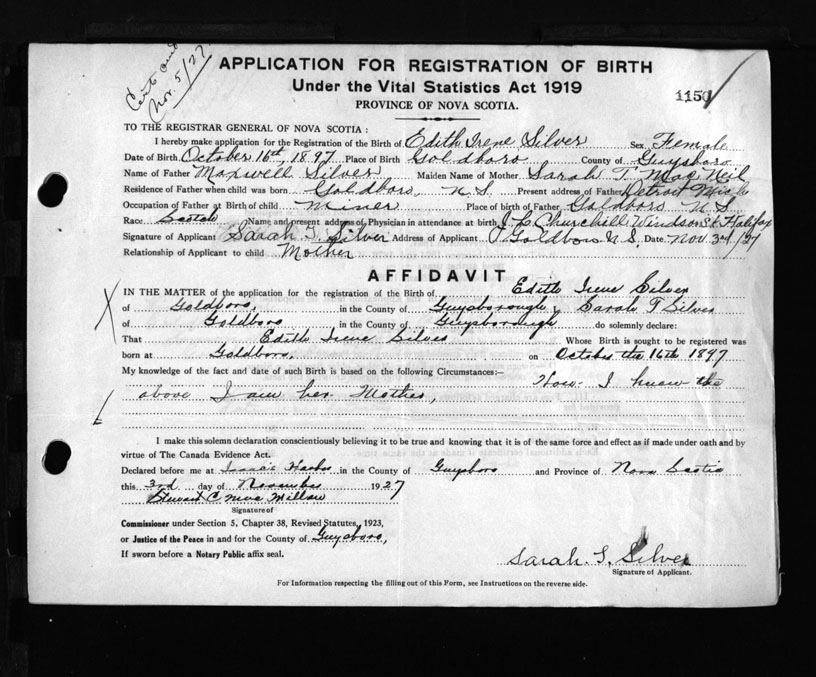 Nov. 5/27
APPLICATION FOR REGISTRATION OF BIRTH
Under the Vital Statistics Act 1919
PROVINCE OF NOVA SCOTIA.
1150
TO THE REGISTRAR GENERAL OF NOVA SCOTIA :
I hereby make application for the Registration of the Birth of Edith Irene Silver Sex Female
Date of Birth October 16th, 1897 Place of Birth Goldboro County of Guysboro
Name of Father Maxwell Silver Maiden Name of Mother Sarah T. MacNeil
Residence of Father when child was born Goldboro, N.S. Present address of Father Detroit Mich
Occupation of Father at Birth of child Miner Place of birth of Father Goldboro N.S.
Race Scotch Name and present address of Physician in attendance at birth J. L. Churchill Windsor St. Halifax
Signature of Applicant Sarah T. Silver Address of Applicant Goldboro N.S. Date Nov. 3rd/27
Relationship of Applicant to child Mother
AFFIDAVIT
IN THE MATTER of the application for the registration of the Birth of Edith Irene Silver
of Goldboro, in the County of Guysborough, Sarah T Silver
of Goldboro in the County of Guysborough do solemnly declare:
That Edith Irene Silver Whose Birth is sought to be registered was
born at Goldboro, on October the 16th 1897
My knowledge of the fact and date of such Birth is based on the following Circumstances:— How I know the
above I am her Mother,
I make this solemn declaration conscientiously believing it to be true and knowing that it is of the same force and effect as if made under oath and by
virtue of The Canada Evidence Act.
Declared before me at Isaacs Harbor in the County of Guysboro and Province of Nova Scotia
this 3rd day of November 1927
Stewart C.
Signature of
Commissioner under Section 5, Chapter 38, Revised Statutes, 1923,
or Justice of the Peace in and for the County of Guysboro,
If sworn before a Notary Public affix seal.
Sarah T. Silver
Signature of Applicant.
For Information respecting the filling out of this Form, see Instructions on the reverse side.